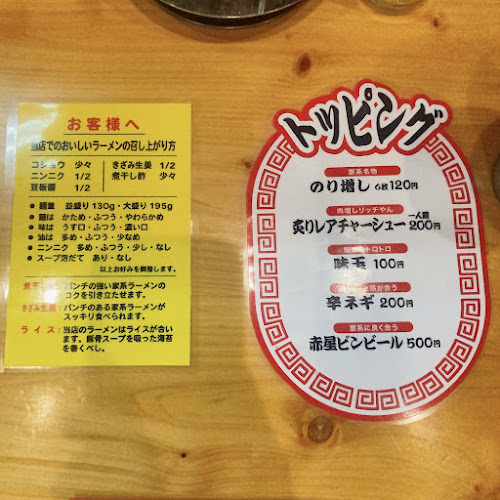 お客様へ
当店でのおいしいラーメンの召し上がり方
コショウ 少々 きざみ生姜 1/2
ニンニク 1/2 煮干し酢 少々
豆板醤 1/2
● 麺量 並盛り130g・大盛り195g
● 麺は かため・ふつう・やわらかめ
● 味は うす口・ふつう・濃い口
● 油は 多め・ふつう・少なめ
● ニンニク 多め・ふつう・少し・なし
● スープ泡だて あり・なし
以上お好みを調整します。
煮干し酢：パンチの強い家系ラーメンの
コクを引き立たせます。
きざみ生姜：パンチのある家系ラーメンが
スッキリ食べられます。
ライス：当店のラーメンはライスが合い
ます。豚骨スープを吸った海苔
を巻くべし。
トッピング
家系名物
のり増し 6枚120円
肉増しリッチやん
炙りレアチャーシュー 一人前200円
トロトロ
味玉 100円
辛ネギ 200円
家系に良く合う
赤星ビンビール 500円